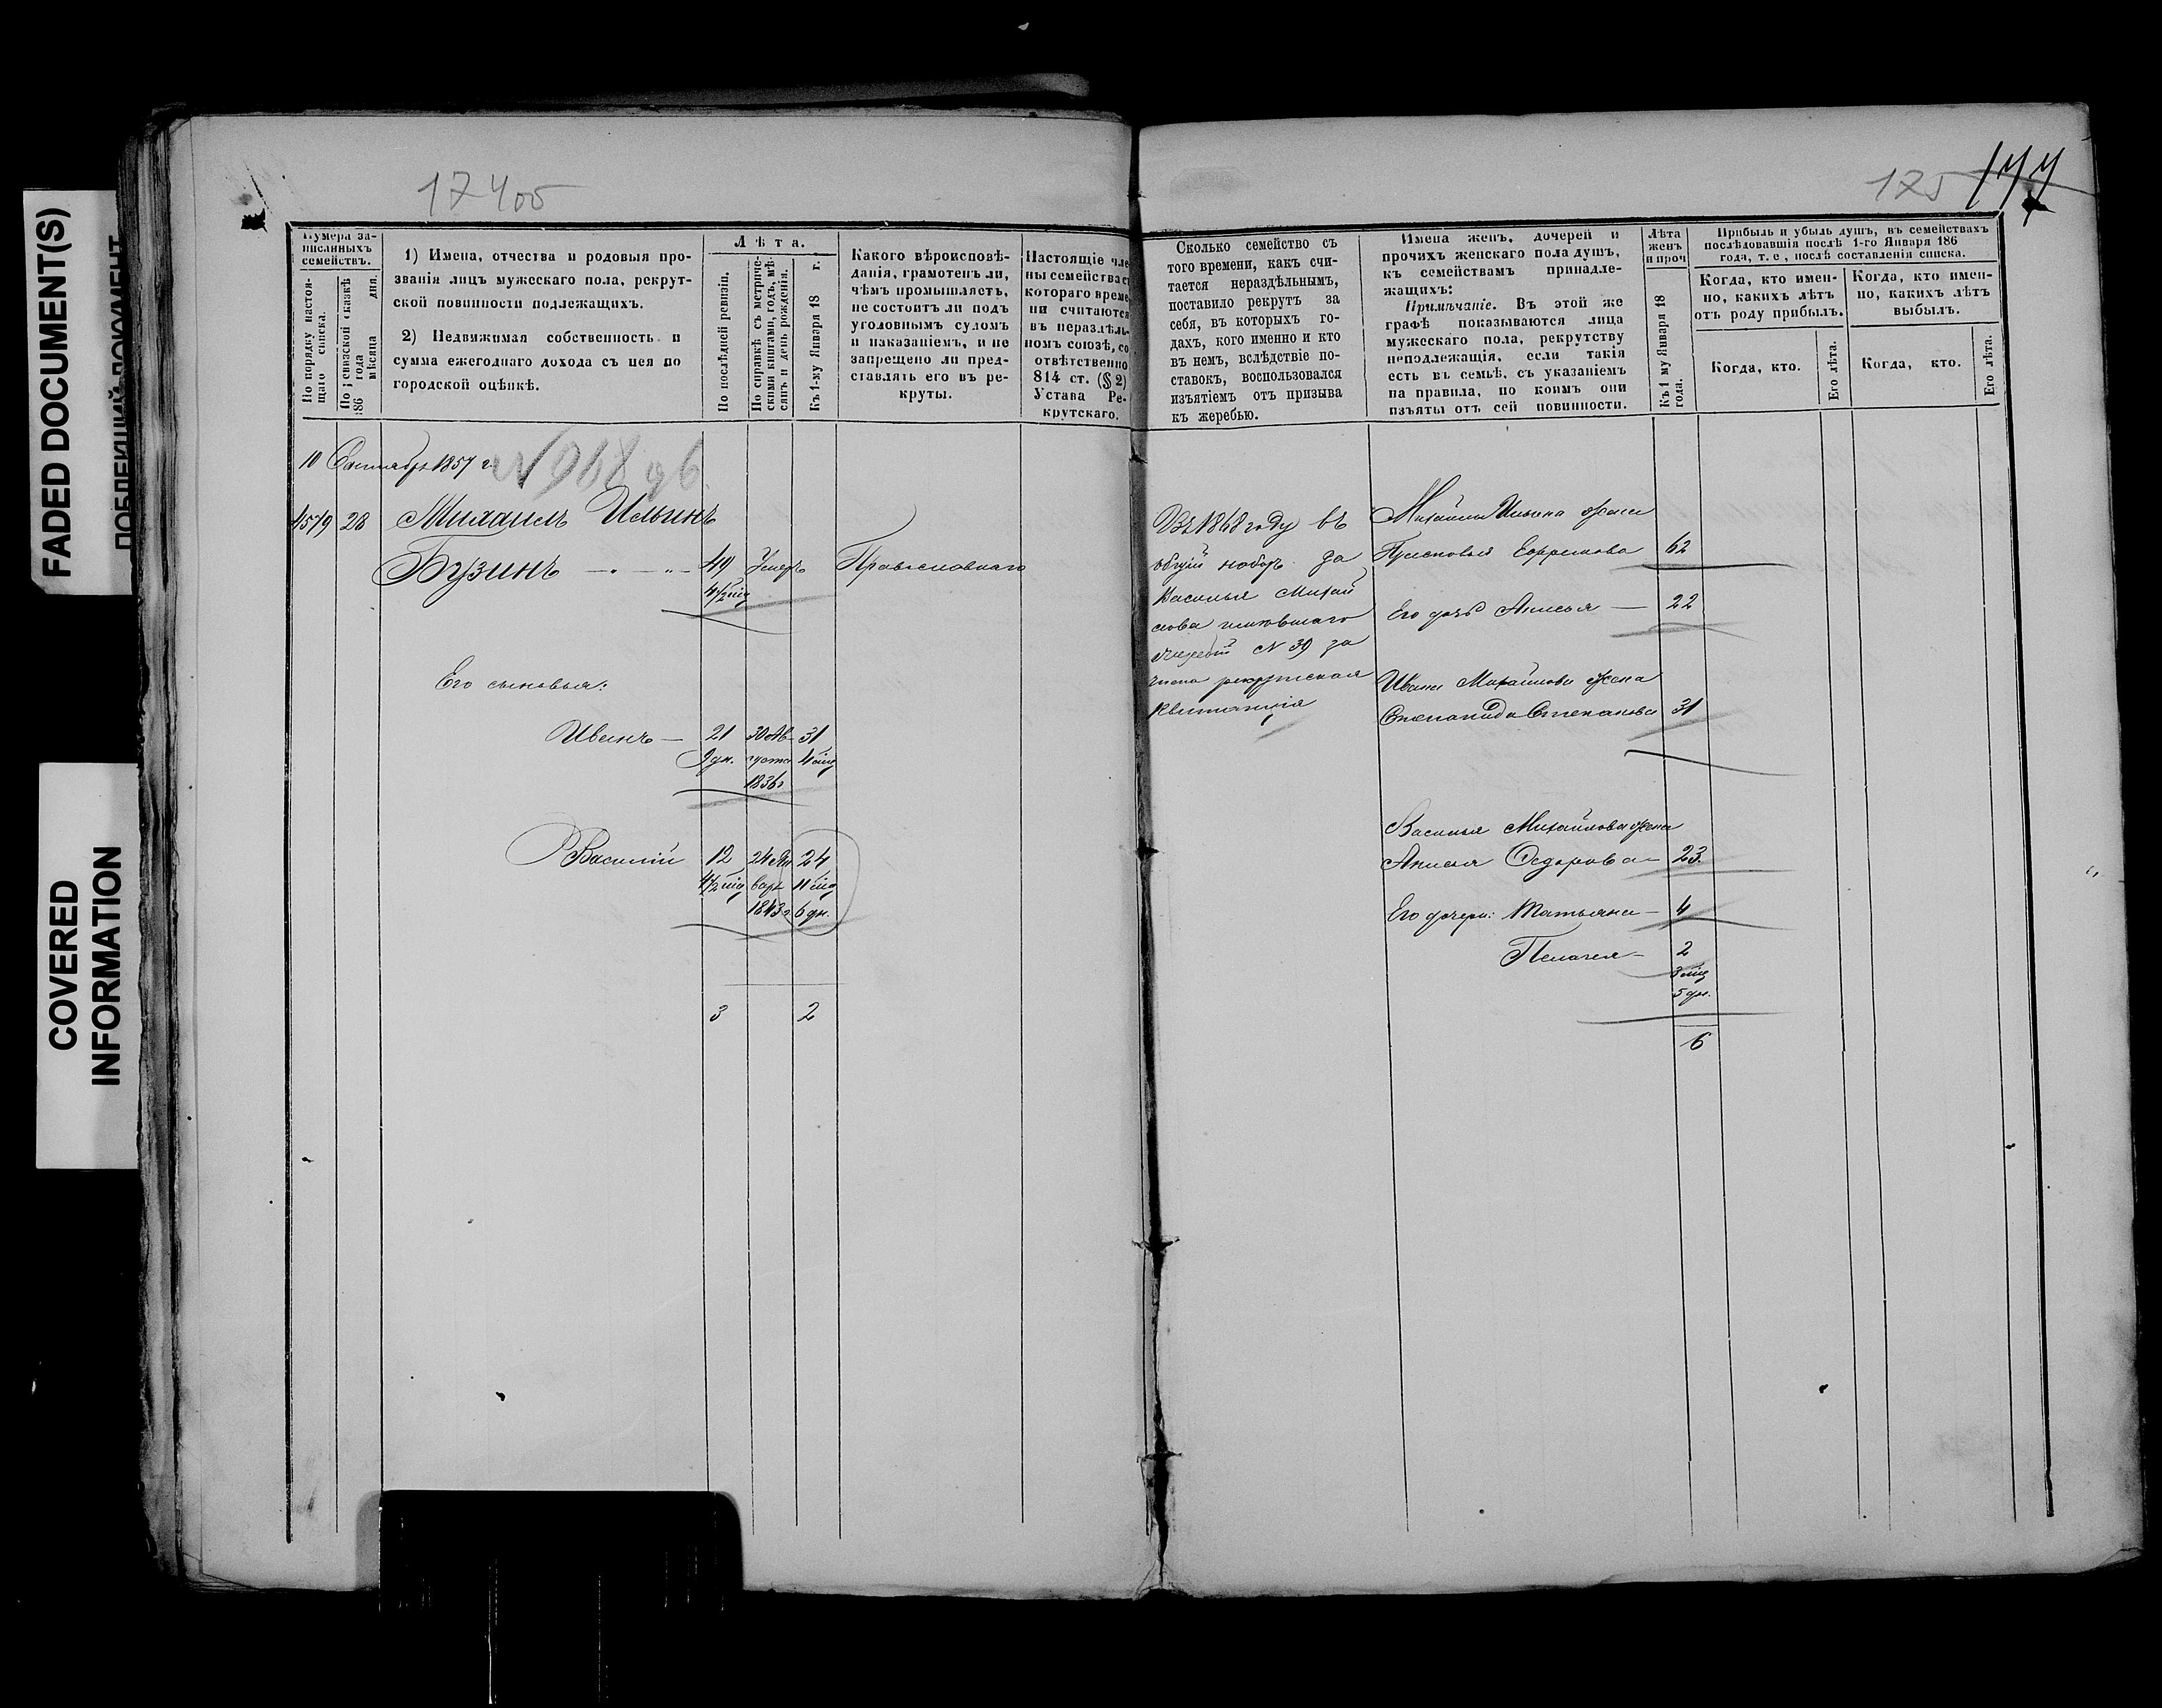 FADED DOCUMENT(S)
COVERED
INFORMATION
17400
175 177
Нумера за-
писанныхъ
семействъ.
По порядку настоя-
щаго списка.
мѣсяца дня.
1) Имена, отчества и родовыя про-
званія лицъ мужескаго пола, рекрут-
ской повинности подлежащихъ.
2) Недвижимая собственность и
сумма ежегоднаго дохода съ нея по
городской оцѣнкѣ.
Лѣта.
По послѣдней ревизіи.
По справкѣ съ метриче-
скими книгами, годъ, мѣ-
сяцъ и день рожденія.
Къ 1-му Января 18 г.
Какого вѣроисповѣ-
данія, грамотенъ ли,
чѣмъ промышляетъ,
не состоитъ ли подъ
уголовнымъ судомъ
и наказаніемъ, и не
запрещено ли пред-
ставлять его въ ре-
круты.
Настоящіе чле-
ны семейства съ
котораго време-
ни считаются
въ нераздѣль-
номъ союзѣ, со-
отвѣтственно
814 ст. (§ 2)
Устава Ре-
крутскаго.
Сколько семейство съ
того времени, какъ счи-
тается нераздѣльнымъ,
поставило рекрутъ за
себя, въ которыхъ го-
дахъ, кого именно и кто
въ немъ, вслѣдствіе по-
ставокъ, воспользовался
изъятіемъ отъ призыва
къ жеребью.
Имена женъ, дочерей и
прочихъ женскаго пола душъ,
къ семействамъ принадле-
жащихъ:
Примѣчаніе. Въ этой же
графѣ показываются лица
мужескаго пола, рекрутству
неподлежащія, если такія
есть въ семьѣ, съ указаніемъ
на правила, по коимъ они
изъяты отъ сей повинности.
Лѣта
женъ
и проч
Къ 1 му Января 18
года.
Прибыль и убыль душъ, въ семействахъ
послѣдовавшія послѣ 1-го Января 186
года, т. е., послѣ составленія списка.
Когда, кто имен-
но, какихъ лѣтъ
отъ роду прибылъ.
Когда, кто имен-
но, какихъ лѣтъ
выбылъ.
Когда, кто.
Его лѣта.
Когда, кто.
Его лѣта.
10 Сентября 1857 г.
4579 28 Михаилъ Ильинъ
Бузинъ 49 Умеръ Православнаго
4 1/2 мц
Его сыновья:
Иванъ — 21 30 Ав- 31
9 дн. густа 4 мц
1836 г.
Василій 12 24 Ян 24
4 1/2 мц варя 11 мц
1843 г. 6 дн.
3 2
Въ 1868 году въ
общій наборъ за
Василья Михай
лова имѣвшаго
жребій N 39 за
чтена рекрутская
квитанція
Михайлы Ильина жена
Прасковья Ефремова 62
Его дочь Анисья — 22
Ивана Михайлова жена
Степанида Степанова 31
Василья Михайлова жена
Анисья Федорова — 23.
Его дочери: Татьяна — 4
Пелагея — 2
5 дн.
6